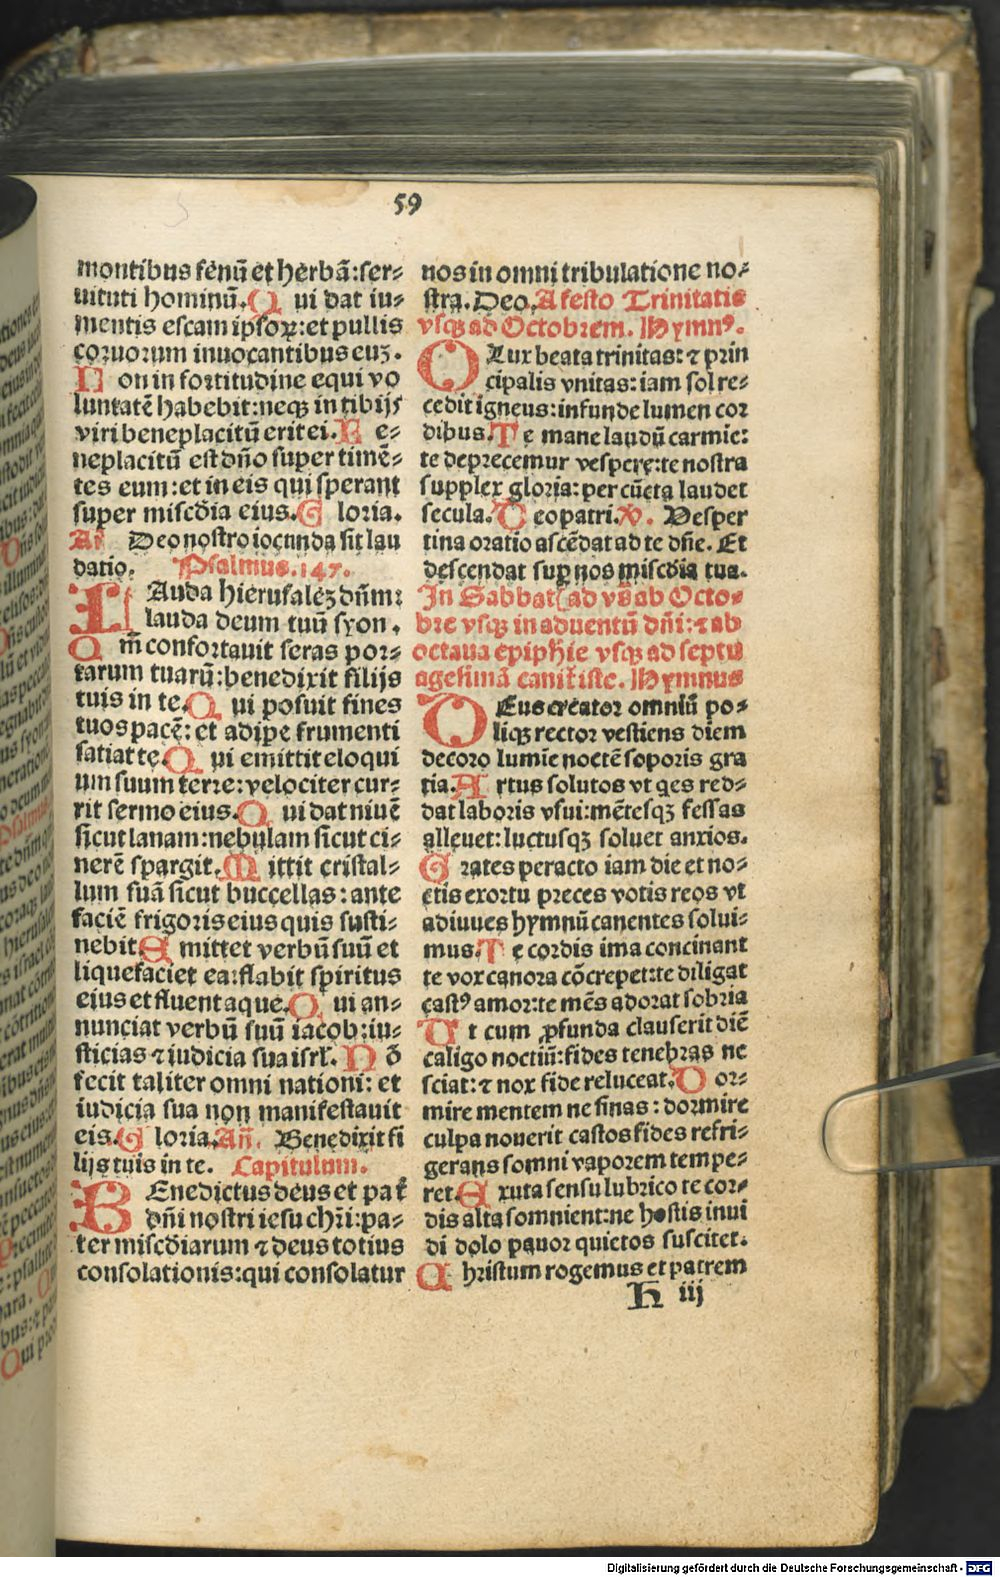 59
montibus fenū et herbā:ser⸗
uituti hominū. Qui dat iu⸗
mentis escam ipsoꝝ:et pullis
coruorum inuocantibus euꝫ.
Non in fortitudine equi vo
luntatē habebit:neqꝫ in tibijs
viri beneplacitū erit ei. Be⸗
neplacitū est dño super timē⸗
tes eum:et in eis qui sperant
super miscdia eius. Gloria.
Añ Deo nostro iocunda sit lau
datio. Psalmus.147.
LAuda hierusalēꝫ dñm:
lauda deum tuū syon.
Qm̄ confortauit seras por⸗
tarum tuarū:benedixit filijs
tuis in te. Qui posuit fines
tuos pacē: et adipe frumenti
satiat te. Qui emittit eloqui
um suum terre:velociter cur⸗
rit sermo eius. Qui dat niuē
sicut lanam:nebulam sicut ci⸗
nerē spargit. Mittit cristal⸗
lum suā sicut buccellas:ante
faciē frigoris eius quis susti⸗
nebit Emittet verbū suū et
liquefaciet ea:flabit spiritus
eius et fluent aque. Qui an⸗
nunciat verbū suū iacob:iu⸗
sticias ⁊ iudicia sua isrl̄. Nō
fecit taliter omni nationi: et
iudicia sua non manifestauit
eis. Gloria. Añ. Benedixit fi
lijs tuis in te. Capitulum.
BEnedictus deus et pat̄
dñi nostri iesu chr̄i:pa⸗
ter miscdiarum ⁊ deus totius
consolationis:qui consolatur
nos in omni tribulatione no⸗
stra. Deo. A festo Trinitatis
vsqꝫ ad Octobrem. Hymnꝰ.
O Lux beata trinitas: ⁊ prin
cipalis vnitas:iam sol re⸗
cedit igneus:infunde lumen cor
dibus. Te mane laudū carmie:
te deprecemur vespere:te nostra
supplex gloria:per cūcta laudet
secula. Deo patri. V. Vesper
tina oratio ascēdat ad te dñe. Et
descendat sup nos miscdia tua.
In Sabbat ad vs̄ ab Octo⸗
bre vsqꝫ in aduentū dñi:⁊ ab
octaua epiphie vsqꝫ ad septu
agesimā canit̄ iste. Hymnus
DEus creator omniū po⸗
liqꝫ rector vestiens diem
decoro lumīe noctē soporis gra
tia. Artus solutos vt qes red⸗
dat laboris vsui:mētesqꝫ fessas
alleuet:luctusqꝫ soluet anxios.
Grates peracto iam die et no⸗
ctis exortu preces votis reos vt
adiuues hymnū canentes solui⸗
mus. Te cordis ima concinant
te vox canora cōcrepet:te diligat
castꝰ amor:te mēs adorat sobria
Ut cum ꝓfunda clauserit diē
caligo noctiū:fides tenebras ne
sciat:⁊ nox fide reluceat. Dor⸗
mire mentem ne sinas: dormire
culpa nouerit castos fides refri⸗
gerans somni vaporem tempe⸗
ret. Exuta sensu lubrico te cor⸗
dis alta somnient:ne hostis inui
di dolo pauor quietos suscitet.
Christum rogemus et patrem
H iij
Digitalisierung gefördert durch die Deutsche Forschungsgemeinschaft - DFG